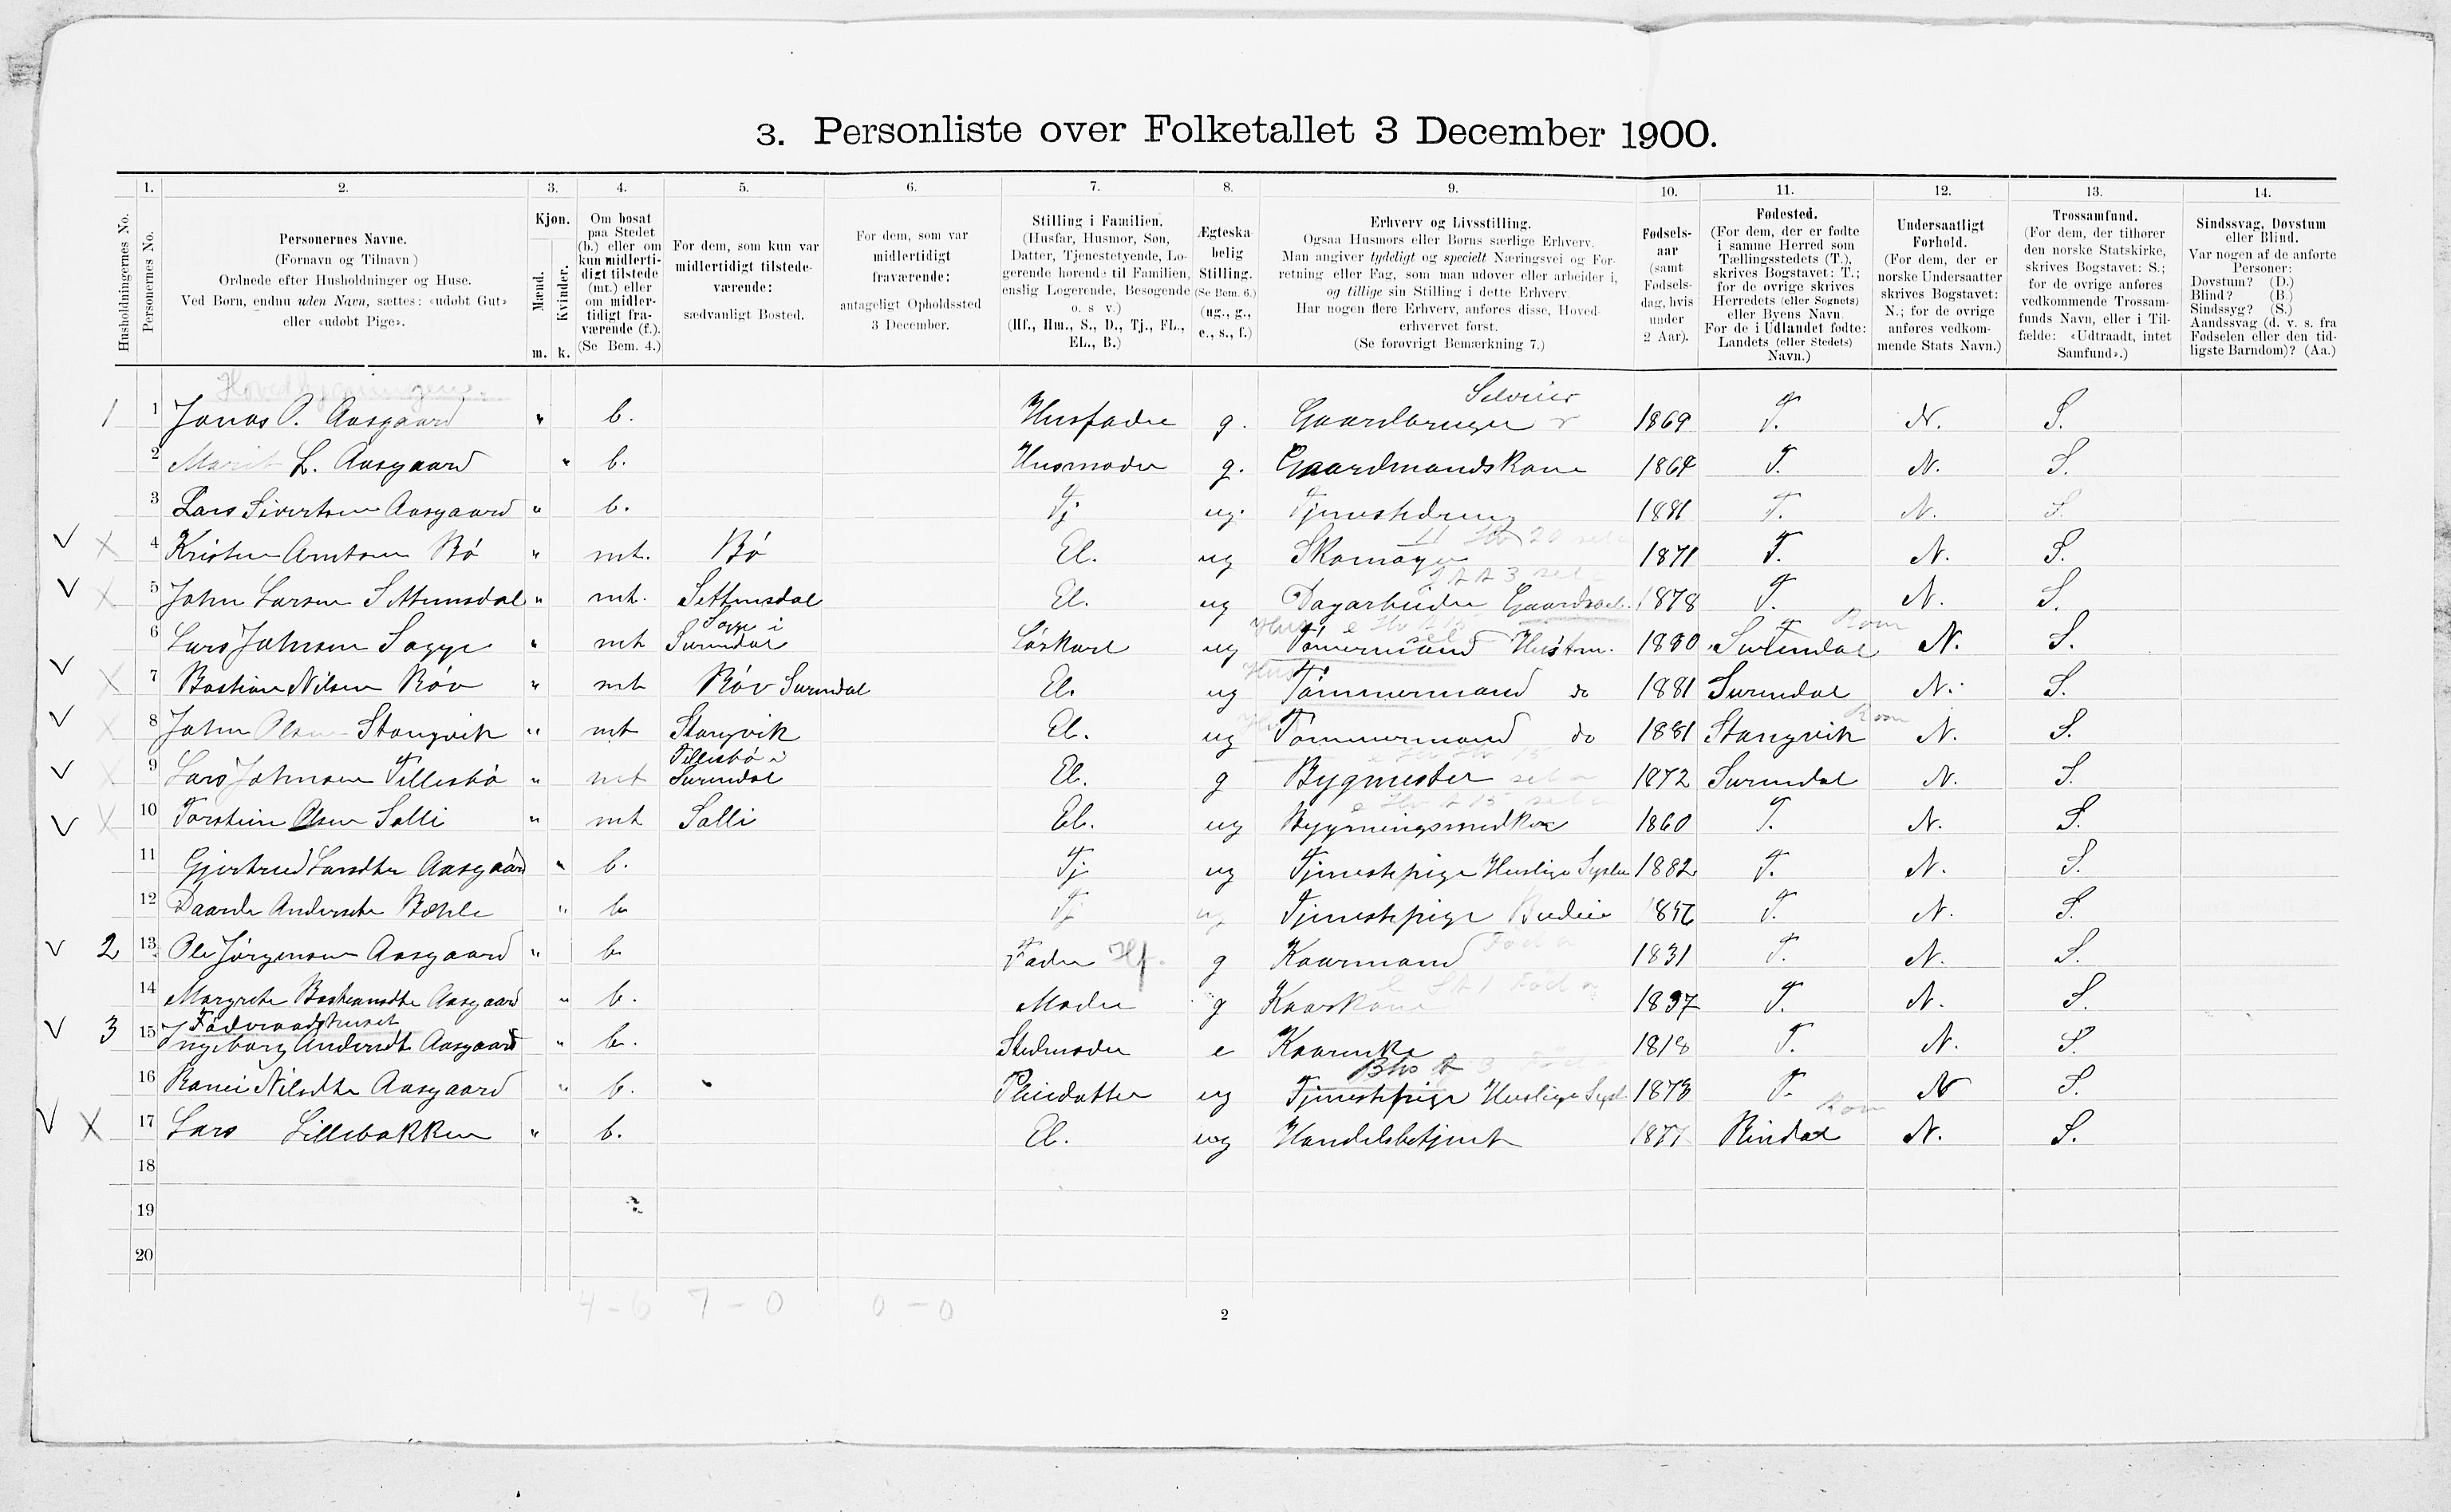 3. Personliste over Folketallet 3 December 1900.
1. 2. 3. 4. 5. 6. 7. 8. 9. 10. 11. 12. 13. 14.
Husholdningernes No.
Personernes No.
Personernes Navne.
(Fornavn og Tilnavn)
Ordnede efter Husholdninger og Huse.
Ved Børn, endnu uden Navn, sættes: «udøbt Gut»
eller «udøbt Pige».
Kjøn.
Mænd.
Kvinder.
m. k.
Om bosat
paa Stedet
(b.) eller om
kun midlerti-
digt tilstede
(mt.) eller
om midler-
tidigt fra-
værende (f.).
(Se Bem. 4.)
For dem, som kun var
midlertidigt tilstede-
værende:
sædvanligt Bosted.
For dem, som var
midlertidigt
fraværende:
antageligt Opholdssted
3 December.
Stilling i Familien.
(Husfar, Husmor, Søn,
Datter, Tjenestetyende, Lo-
gerende hørende til Familien,
enslig Logerende, Besøgende
o. s v.)
(Hf., Hm., S., D., Tj., FL.,
EL., B.)
Ægteska-
belig
Stilling.
(Se Bem. 6.)
(ug., g.,
e., s., f.)
Erhverv og Livsstilling.
Ogsaa Husmors eller Børns særlige Erhverv.
Man angiver tydeligt og specielt Næringsvei og For-
retning eller Fag, som man udøver eller arbeider i,
og tillige sin Stilling i dette Erhverv.
Har nogen flere Erhverv, anføres disse, Hoved-
erhvervet først.
(Se forøvrigt Bemærkning 7.)
Fødsels-
aar
(samt
Fødsels-
dag, hvis
under
2 Aar).
Fødested.
(For dem, der er fødte
i samme Herred som
Tællingsstedets (T.),
skrives Bogstavet: T.;
for de øvrige skrives
Herredets (eller Sognets)
eller Byens Navn.
For de i Udlandet fødte:
Landets (eller Stedets)
Navn.)
Undersaatligt
Forhold.
(For dem, der er
norske Undersaatter
skrives Bogstavet:
N.; for de øvrige
anføres vedkom-
mende Stats Navn.)
Trossamfund.
(For dem, der tilhører
den norske Statskirke,
skrives Bogstavet: S.;
for de øvrige anføres
vedkommende Trossam-
funds Navn, eller i Til-
fælde: «Udtraadt, intet
Samfund».)
Sindssvag, Døvstum
eller Blind.
Var nogen af de anførte
Personer:
Døvstum? (D.)
Blind? (B.)
Sindssyg? (S.)
Aandssvag (d. v. s. fra
Fødselen eller den tid-
ligste Barndom)? (Aa.)
Hovedbygningen.
1 1 Jonas O. Aasgaard " b. Husfader g. Gaardbruger Selveier 1869 T. N. S.
2 Marit L. Aasgaard " b. Husmoder g. Gaardmandskone 1864 T. N. S.
3 Lars Sivertsen Aasgaard " b. Tj ug. Tjenestedreng 1881 T. N. S.
4 Kristen Arntsen Bø " mt. Bø El. ug Skomager 1871 T. N. S.
5 John Larsen Settemsdal " mt. Settemsdal El. ug Dagarbeider Gaardsarb. 1878 T. N. S.
6 Lars Johnsen Sagge " mt Sagge i Surendal Løskarl ug Tømmermand Hustm. 1880 Surendal N. S.
7 Bastian Nilsen Røv " mt Røv Surendal El. ug Tømmermand do 1881 Surendal N. S.
8 John Olsen Stangvik " mt Stangvik El. ug Tømmermand do 1881 Stangvik N. S.
9 Lars Johnsen Tellesbø " mt Tellesbø i Surendal El. g Bygmester 1872 Surendal N. S.
10 Torstein Olsen Salli " mt Salli El. ug Bygningssnedker 1860 T. N. S.
11 Gjertrud Larsdtr Aasgaard " b. Tj ug Tjenestepige Huslige Sysler 1882 T. N. S.
12 Andersdtr Bæhle " b. Tj ug Tjenestepige Budeie T. N. S.
2 13 Ole Jørgensen Aasgaard " b. Fader Hf. g Kaarmand 1831 T. N. S.
14 Margrete Bastiansdtr Aasgaard " b. Moder g Kaarkone 1837 T. N. S.
Føderaadshuset
3 15 Ingeborg Andersdtr Aasgaard " b. Stedmoder e Kaarenke 1818 T. N. S.
16 Ranei Nilsdtr Aasgaard " b. Pleiedatter ug Tjenestepige Huslige Sysl. 1873 T. N S.
17 Lars Lillebakken " b. El. ug Handelsbetjent 1877 Rindal N. S.
18
19
20
4 - 6 7 - 0 0 - 0
2